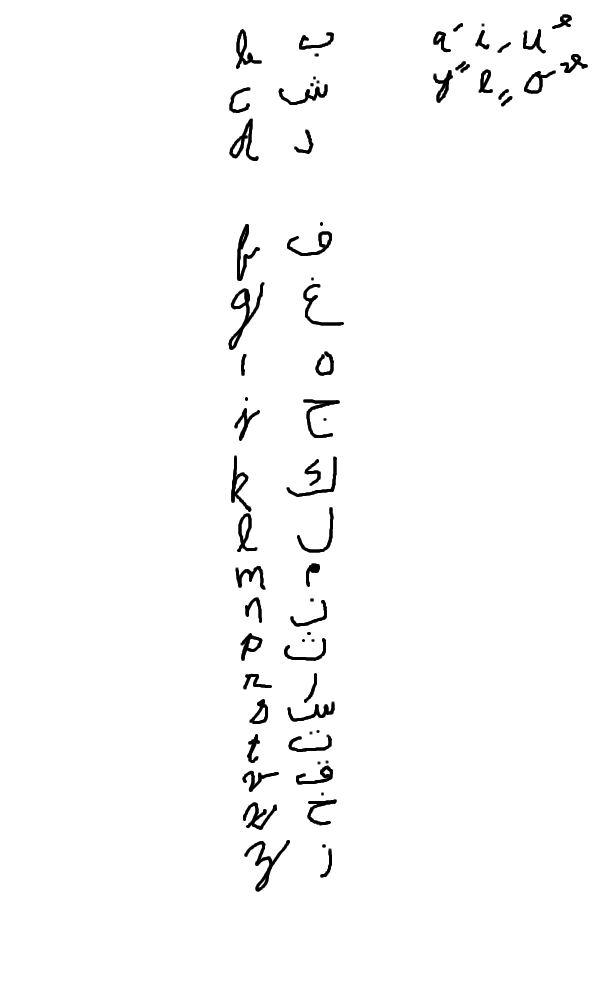 b ب
c ش
d د
f ف
g غ
ı ه
j ج
k ك
l ل
m م
n ن
p ث
r ر
s س
t ت
v ڤ
x خ
z ز
a َ i ِ u ُ
y ً e ٍ o ٌ